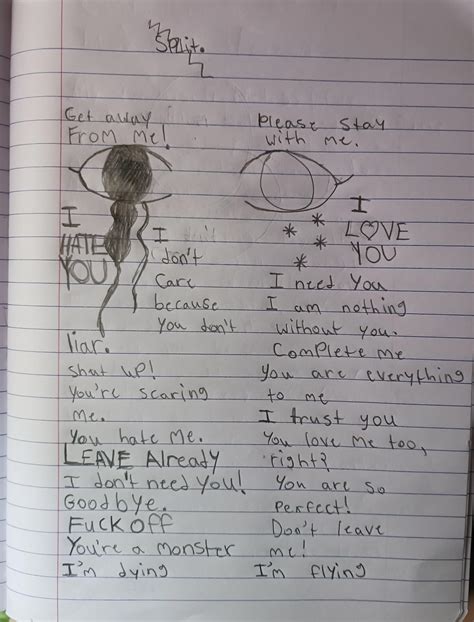 Split.
Get away
From Me!
I
HATE
YOU
I
don't
Care
because
You don't
liar.
shut up!
You're scaring
me.
You hate Me.
LEAVE Already
I don't need You!
Goodbye.
FUCK OFF
You're a monster
I'm dying
Please stay
with me.
I
L♡VE
YOU
I need You
I am nothing
without you.
Complete me
You are everything
to me
I trust you
You love me too,
right?
You are so
perfect!
Don't leave
me!
I'm flying